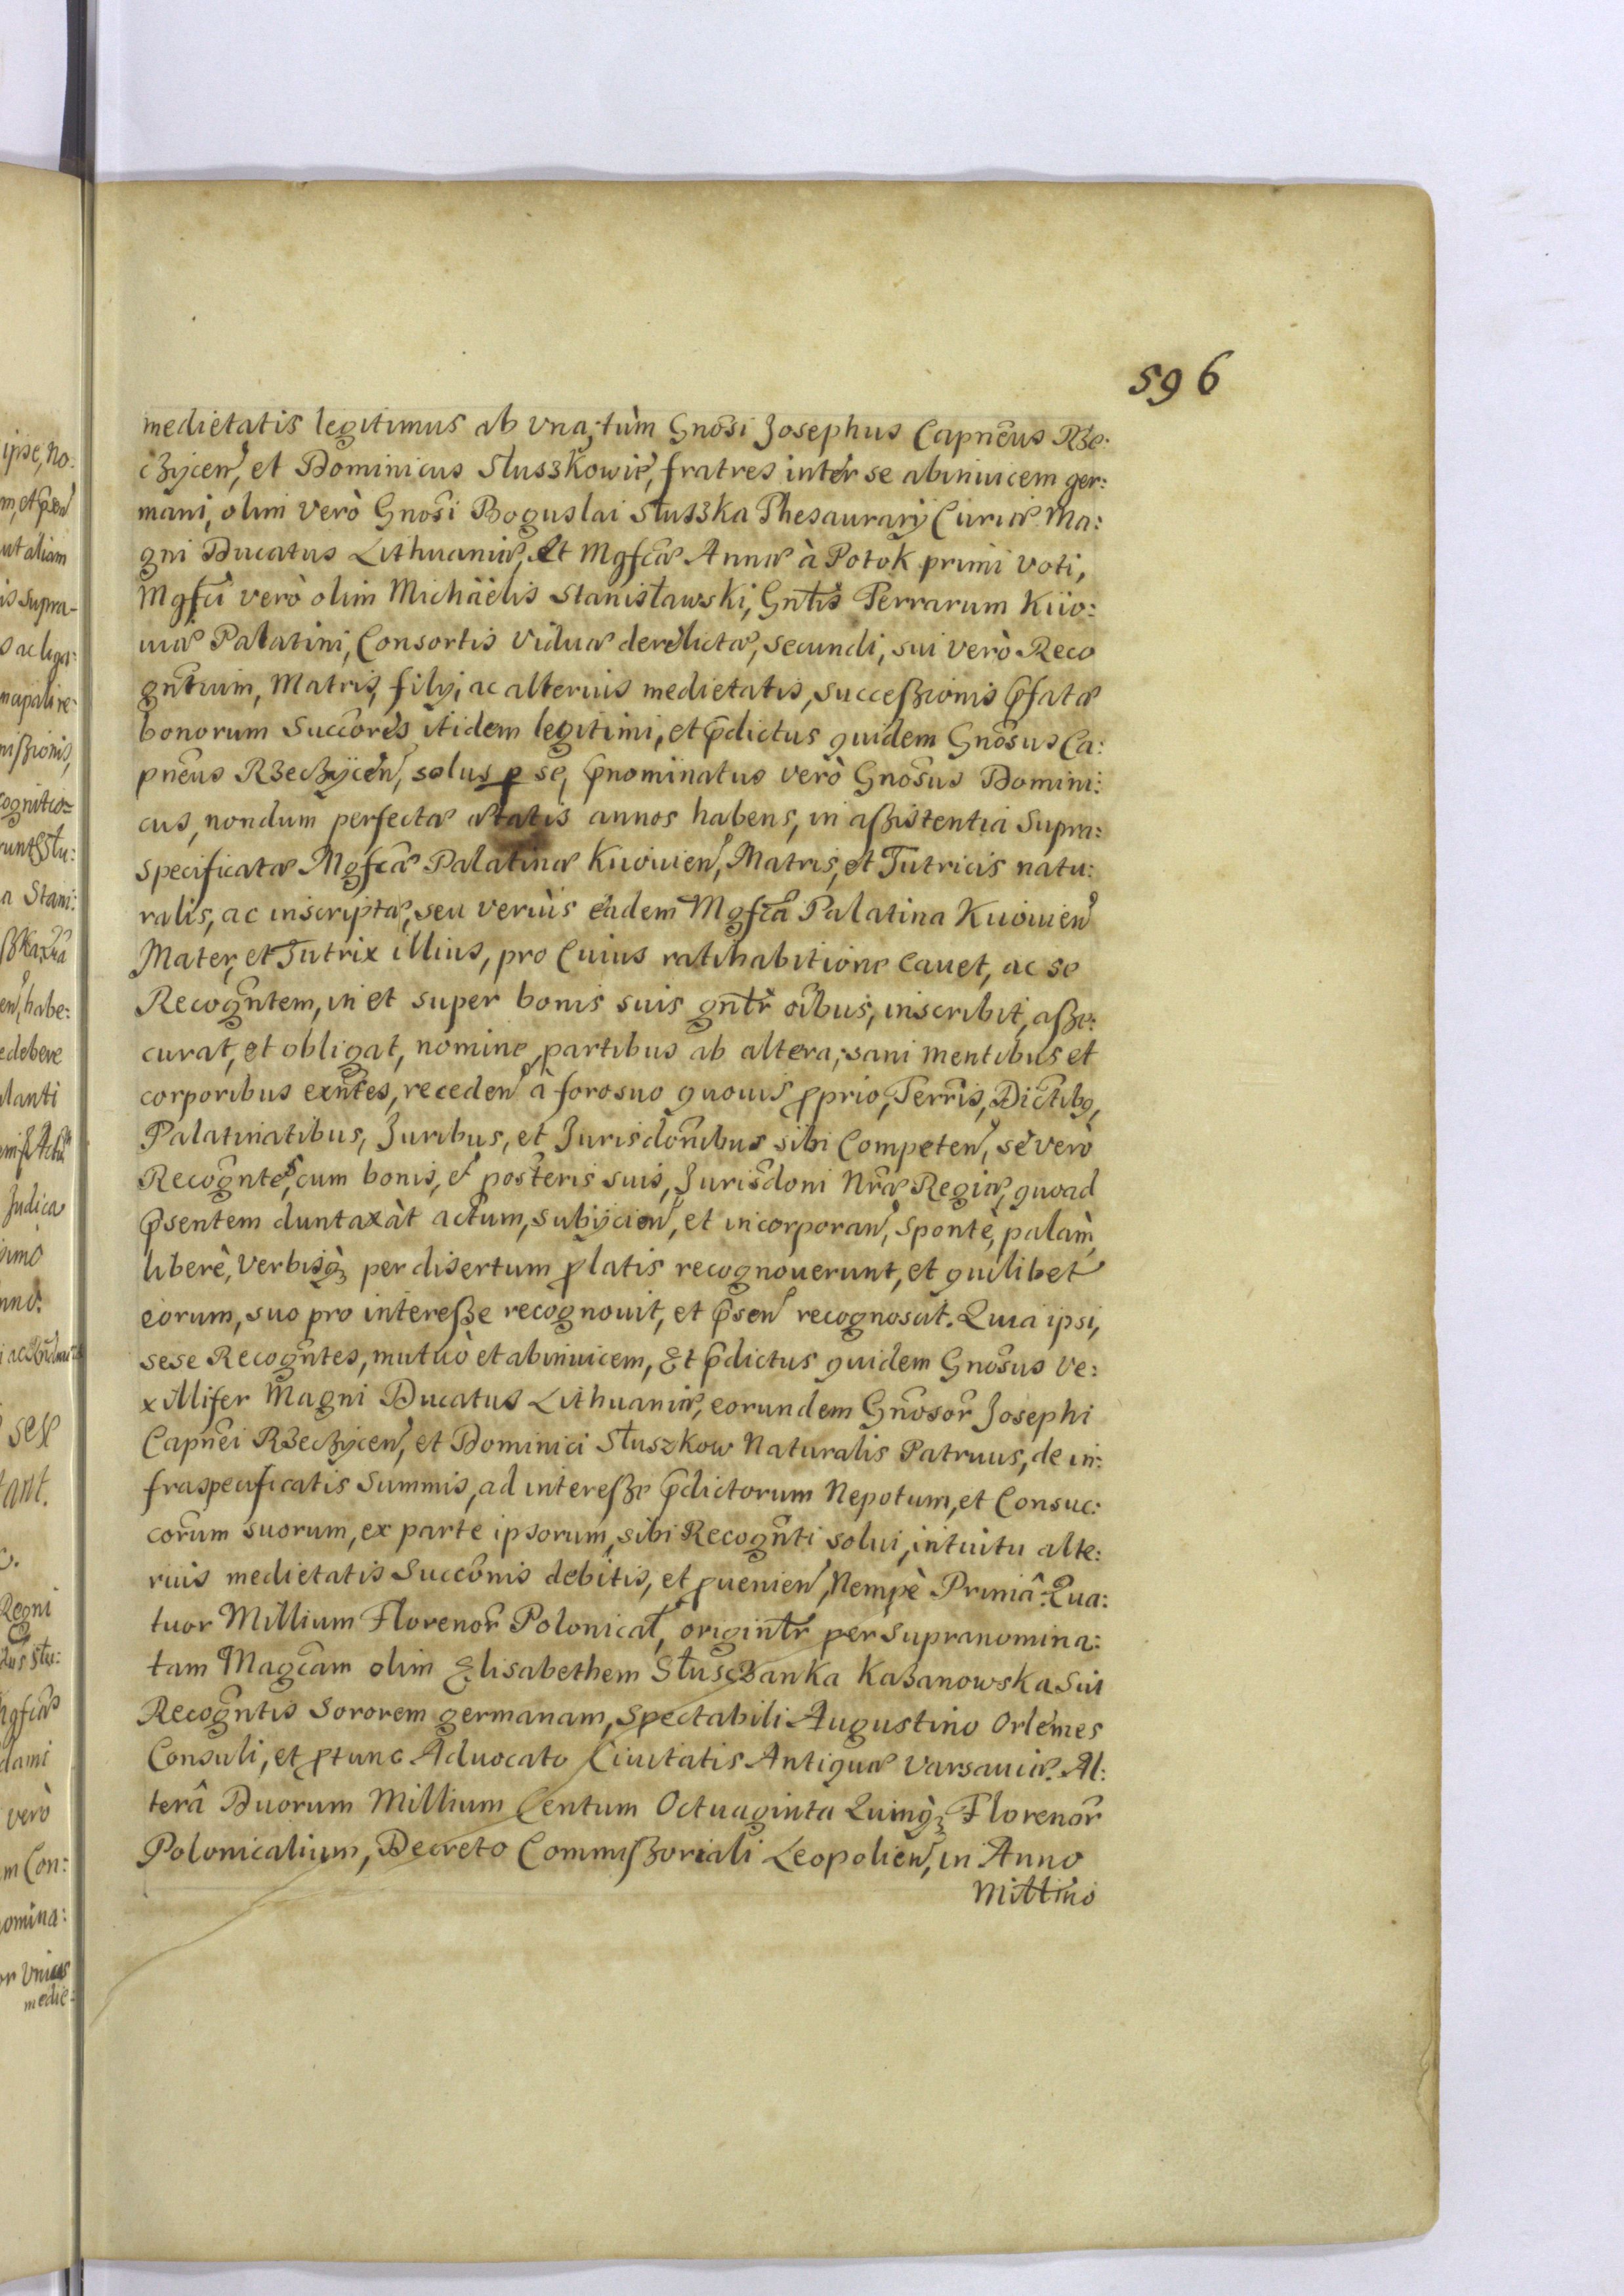 596
medietatis legitimus ab una, tùm Gnōsi Josephus Capnēus Rze:
czycen̄, et Dominicus Słuszkowie, fratres inter se abinuicem ger:
mani, olim verò Gnōsi Boguslai Słuszka Thesaurarÿ Curiæ Ma:
gni Ducatus Lithuaniæ, et Mgfcæ Annæ à Potok primi voti,
Mgfci verò olim Michäelis Stanisławski, Gntis Terrarum Kiio:
uiæ Palatini, Consortis viduæ derelictæ, secundi, sui verò Reco
gntium, Matris, filÿ, ac alterius medietatis, successzionis p̄fatæ
bonorum Succōres itidem legitimi, et p̄dictus quidem Gnōsus Ca:
pnēus Rzeczÿcen̄, solus ꝑ se, p̄nominatus verò Gnōsus Domini:
cus, nondum perfectæ ætatis annos habens, in aßistentia Supra:
specificatæ Mgfcæ Palatinæ Kiiouien̄, Matris, et Tutricis natu:
ralis, ac inscriptæ, seu veriùs eadem Mgfca Palatina Kiiouien̄
Mater, et Tutrix illius, pro Cuius ratihabitione Cauet, ac se
Recogntem, in et super bonis suis gntr̄ oībus, inscribit, aßze:
curat, et obligat, nomine, partibus ab altera; sani mentibus et
corporibus exn̄tes, receden̄ à foro suo quouis ꝓprio, Terris, Dictibq,
Palatinatibus, Juribus, et Jurisdonibus sibi Competen̄, se verò
Recogntes, cum bonis, et posteris suis, Jurisdoni Nræ Regiæ, quoad
p̄sentem duntaxàt actum, subÿcien̄, et incorporan̄, sponte, palàm,
liberè, verbisq̀ per disertum ꝓlatis recognouerunt, et quilibet
eorum, suo pro intereßze recognouit, et p̄sen̄ recognoscit. Quia ipsi,
sese Recogntes, mutuò et abinuicem, Et p̄dictus quidem Gnōsus Ve:
xillifer Magni Ducatus Lithuaniæ, eorundem Gnōsor̄ Josephi
Capnēi Rzeczÿcen̄, et Dominici Słuszkow Naturalis Patruus, de in:
fraspecificatis Summis, ad intereßze p̄dictorum Nepotum, et Consuc:
corum suorum, ex parte ipsorum, sibi Recognti solui, intuitu alte:
rius medietatis Succōnis debitis, et ꝓuenien̄, Nempè Primâ Qua:
tuor Millium Florenor̄ Polonical, origintr̄ per supranomina:
tam Magcam olim Elisabethem Słusczanka Kazanowska Sui
Recogntis Sororem germanam, Spectabili Augustino Orlemes
Consuli, et ꝓtunc Aduocato Ciuitatis Antiquæ Varsauiæ. Al:
terâ Duorum Millium Centum Octuaginta Quinq̀ Florenor̄
Polonicalium, Decreto Commißzoriali Leopolien̄, in Anno
Millīno